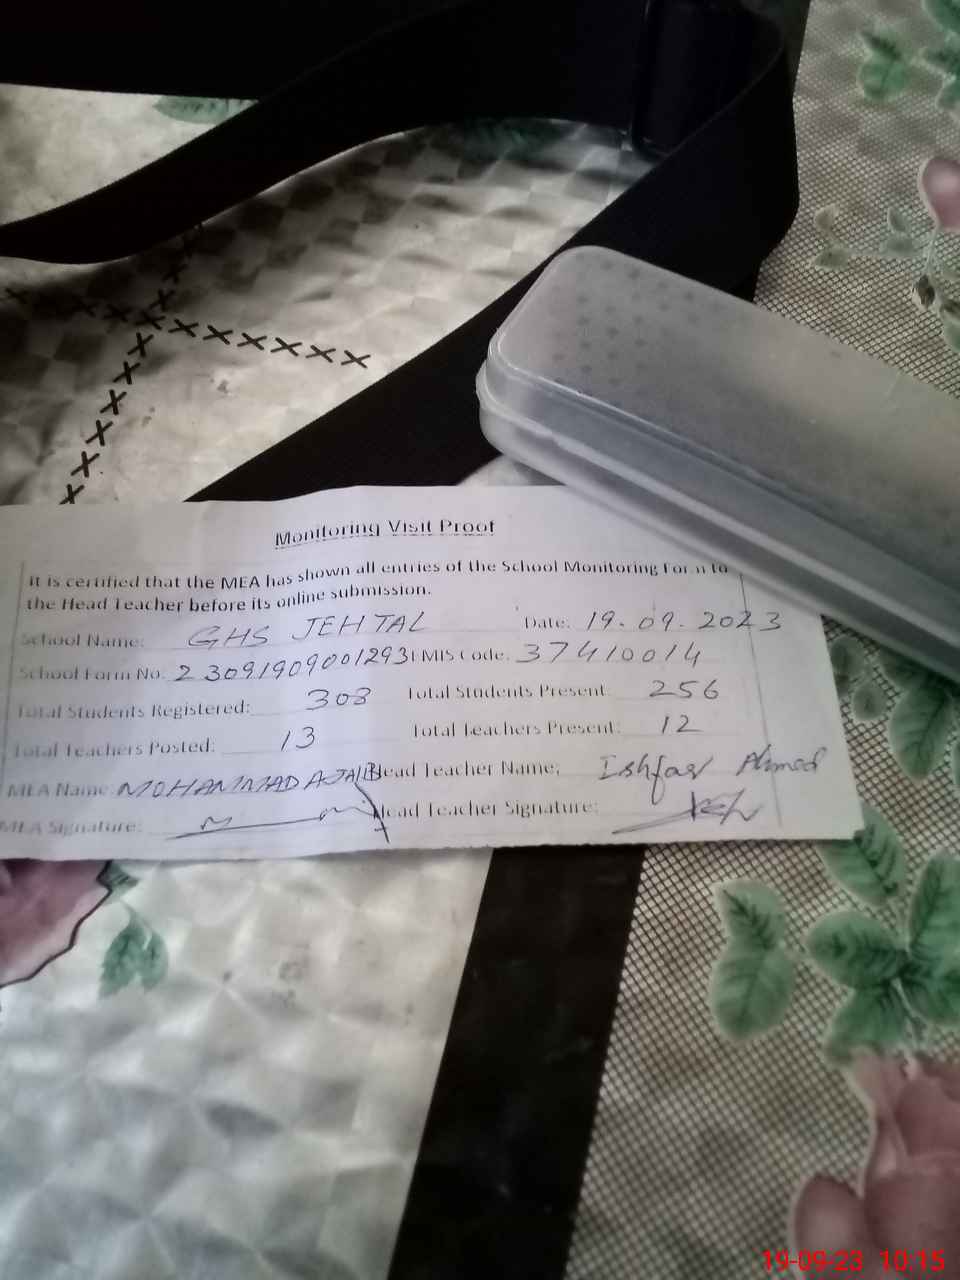 Monitoring Visit Proof
It is certified that the MEA has shown all entries of the School Monitoring Form to
the Head Teacher before its online submission.
School Name: GHS JEHTAL Date: 19.09.2023
School Form No: 23091909001293 EMIS Code: 37410014
Total Students Registered: 308 Total Students Present: 256
Total Teachers Posted: 13 Total Teachers Present: 12
MEA Name: MOHAMMAD Head Teacher Name: Ishfaq Ahmed
MEA Signature: Head Teacher Signature:
19-09-23 10:15